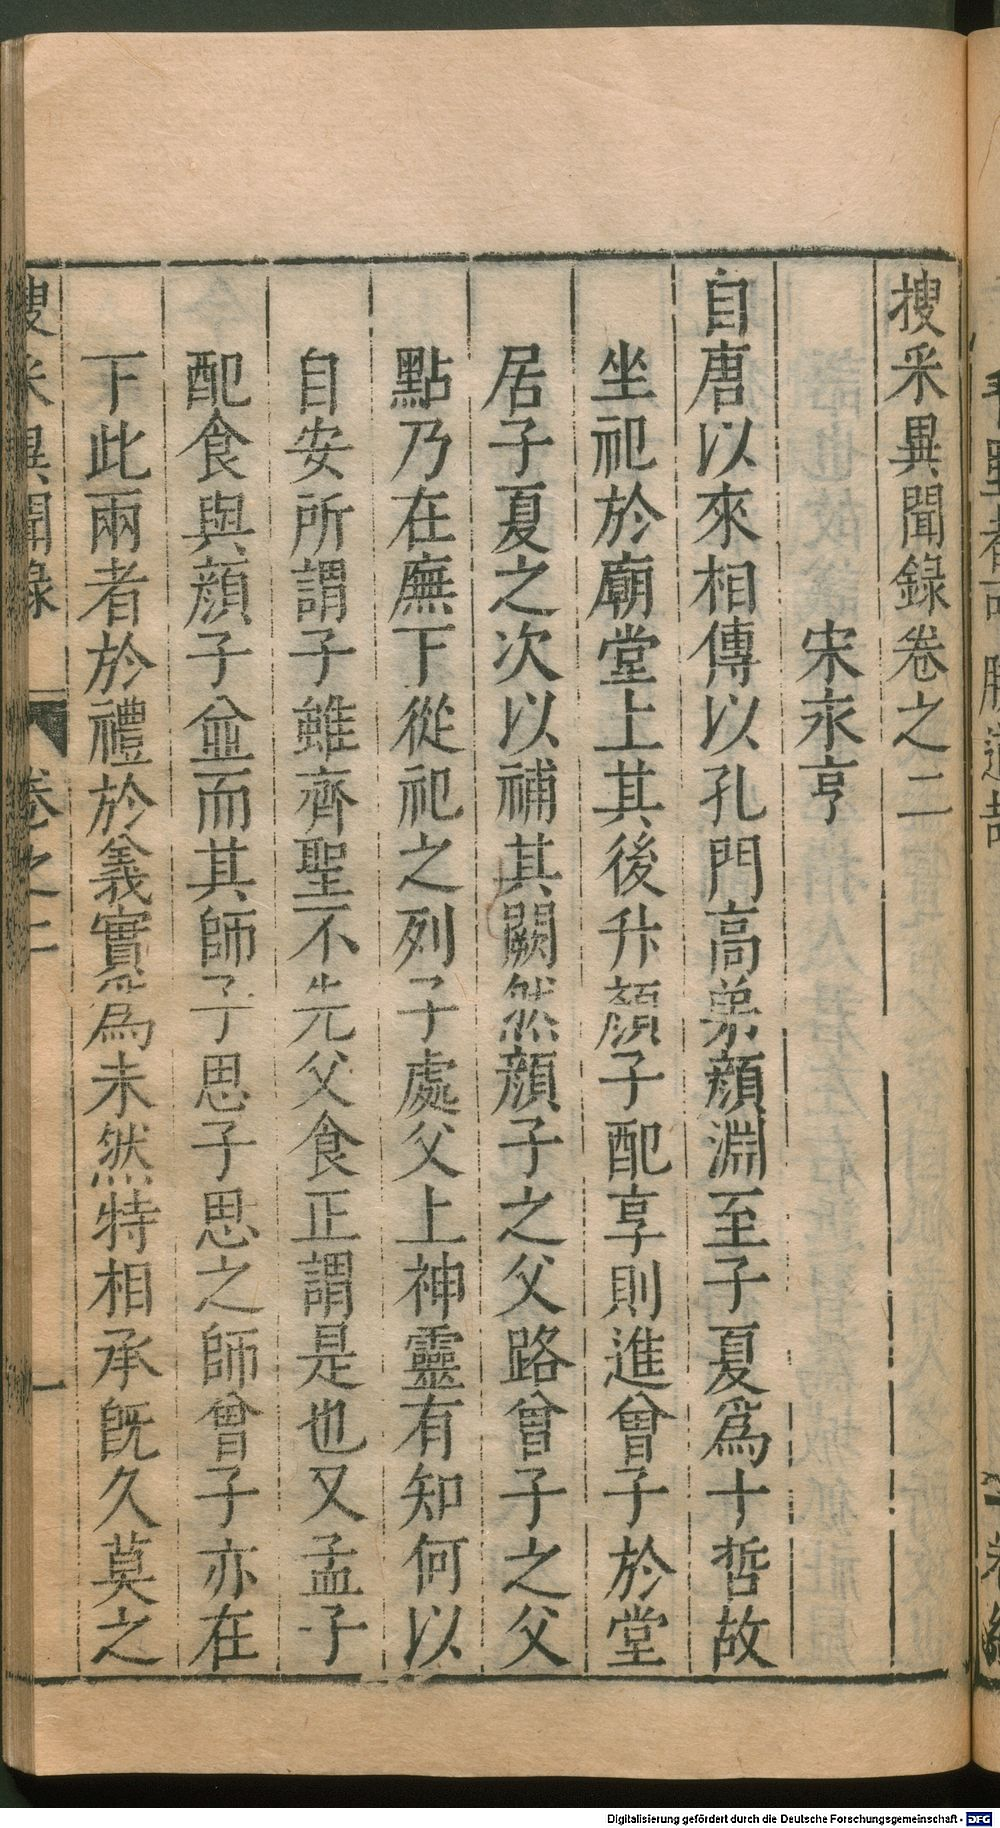 搜采異聞錄卷之二
宋永亨
自唐以來相傳以孔門高弟顏淵至子夏爲十哲故
坐祀於廟堂上其後升顏子配享則進曾子於堂
居子夏之次以補其闕然顏子之父路曾子之父
點乃在廡下從祀之列子處父上神靈有知何以
自安所謂子雖齊聖不先父食正謂是也又孟子
配食與顏子並而其師子思子思之師曾子亦在
下此兩者於禮於義實爲未然特相承既久莫之
搜采異聞錄
卷之二
一
Digitalisierung gefördert durch die Deutsche Forschungsgemeinschaft - DFG